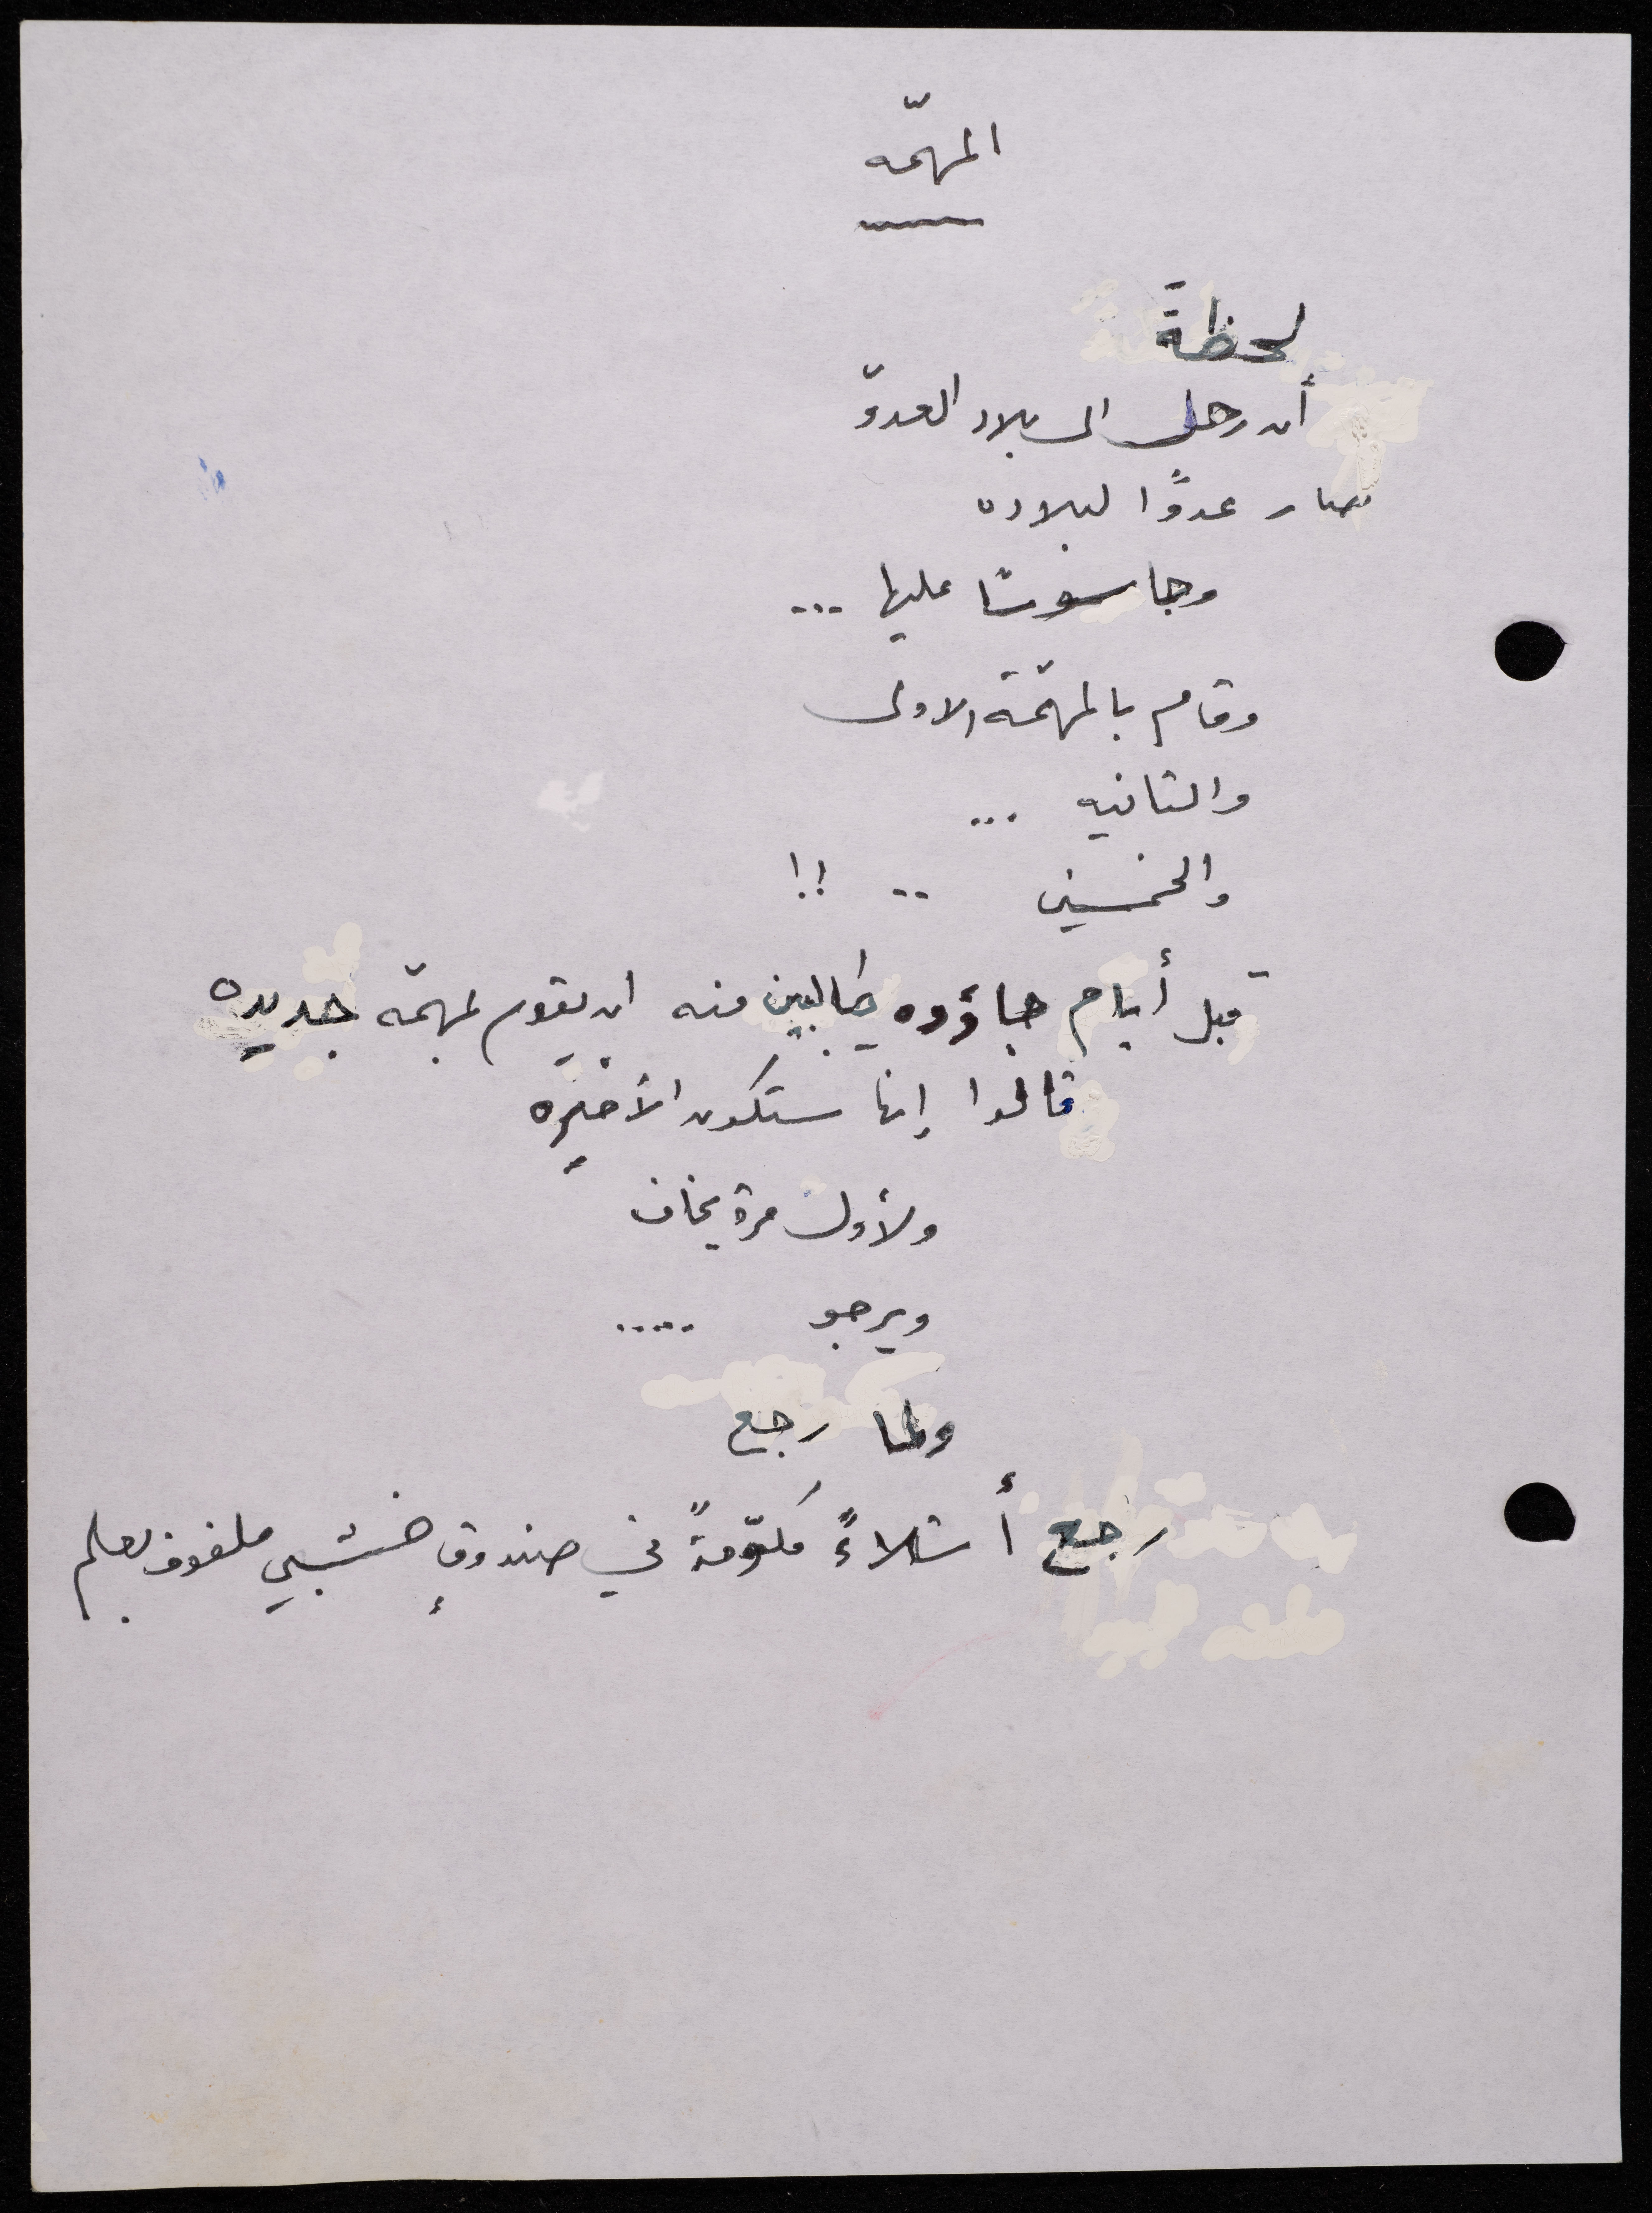 المهمّه
لحظةَ
أن رحل الى بلاد العدوّ
صار عدوًّا لبلاده
وجاسوسًا عليها ...
وقام بالمهمّة الاولى
والثانيه ...
والخمسين .. !!
قبل أيام جاؤوه طالبين منه ان يقوم بمهمّه جديده
قالوا إنها ستكون الأخيره
ولأول مرة يخاف
ويرجو .....
ولما رجع
رجع أشلاءً مكوّمةً في صندوقٍ خشبي ملفوف بعلم